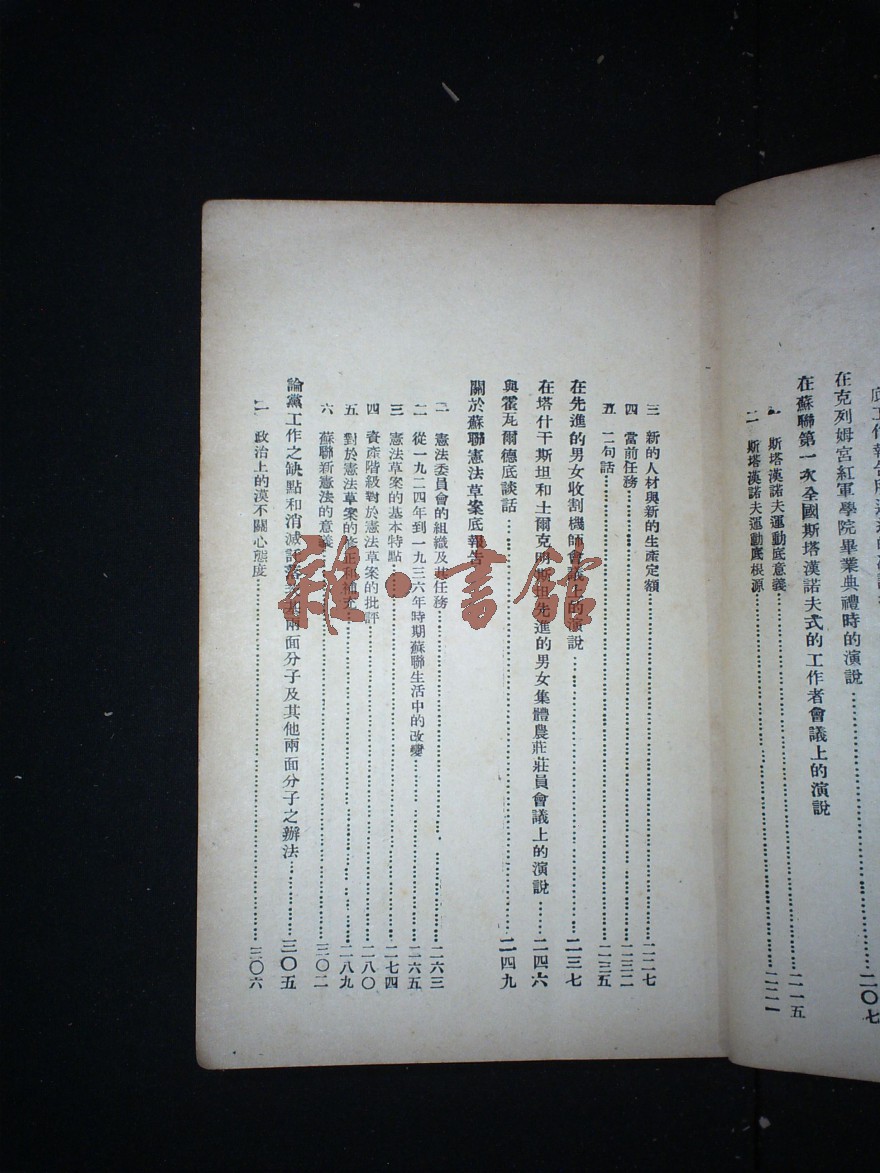 底工作報告
在克列姆宮紅軍學院畢業典禮時的演說……二〇七
在蘇聯第一次全國斯塔漢諾夫式的工作者會議上的演說
一 斯塔漢諾夫運動底意義……二一五
二 斯塔漢諾夫運動底根源……二二一
三 新的人材與新的生產定額……二二七
四 當前任務……二三二
五 二句話……二三五
在先進的男女收割機師會議上的演說……二三七
在塔什干斯坦和土爾克明斯坦先進的男女集體農莊莊員會議上的演說……二四六
與霍瓦爾德底談話……二四九
關於蘇聯憲法草案底報告
一 憲法委員會的組織及其任務……二六三
二 從一九二四年到一九三六年時期蘇聯生活中的改變……二六五
三 憲法草案的基本特點……二七四
四 資產階級對於憲法草案的批評……二八〇
五 對於憲法草案的修正和補充……二八九
六 蘇聯新憲法的意義……三〇二
論黨工作之缺點和消滅託洛茨基兩面分子及其他兩面分子之辦法……三〇五
一 政治上的漠不關心態度……三〇六
雜·書館